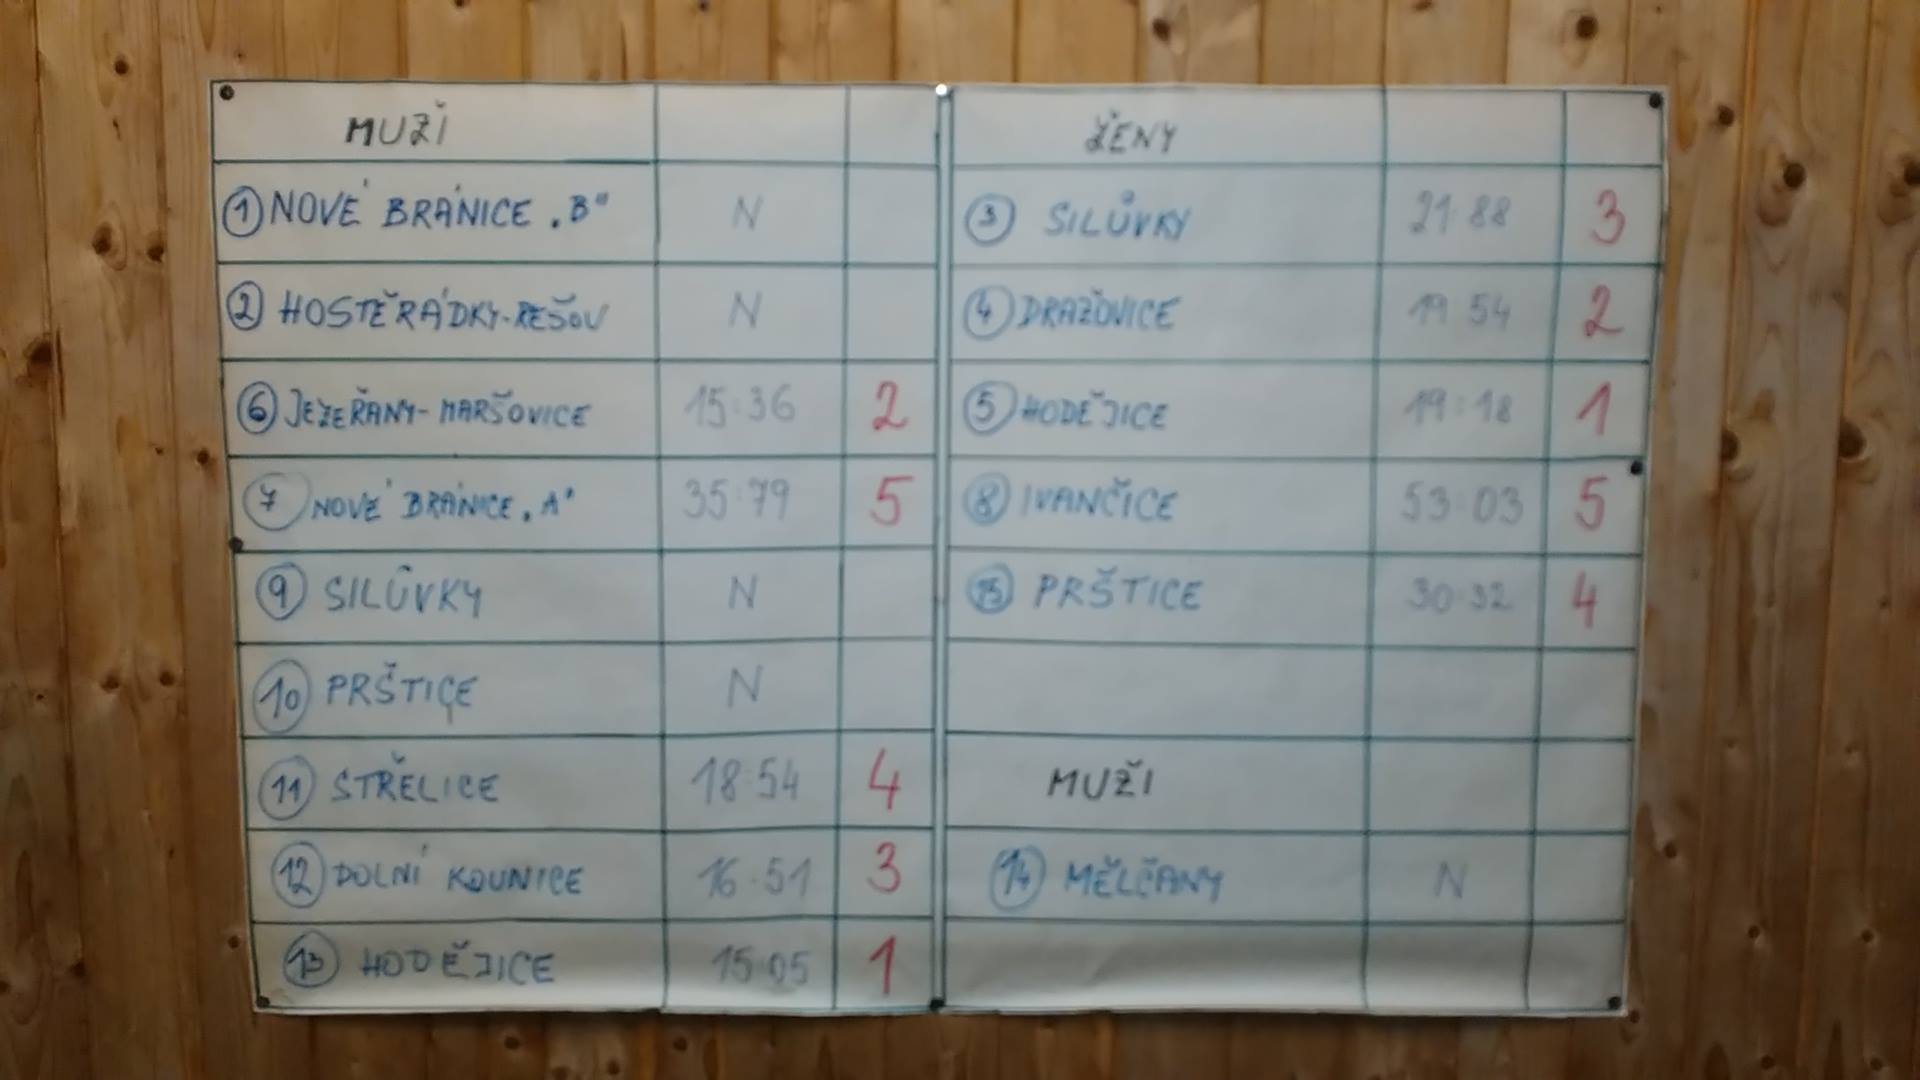 MUŽI
1 NOVÉ BRÁNICE „B" N
2 HOSTĚRÁDKY-REŠOV N
6 JEZEŘANY-MARŠOVICE 15:36 2
7 NOVÉ BRÁNICE „A" 35:79 5
9 SILŮVKY N
10 PRŠTICE N
11 STŘELICE 18:54 4
12 DOLNÍ KOUNICE 16:51 3
13 HODĚJICE 15:05 1
ŽENY
3 SILŮVKY 21:88 3
4 DRAŽOVICE 19:54 2
5 HODĚJICE 19:18 1
8 IVANČICE 53:03 5
15 PRŠTICE 30:32 4
MUŽI
14 MĚLČANY N